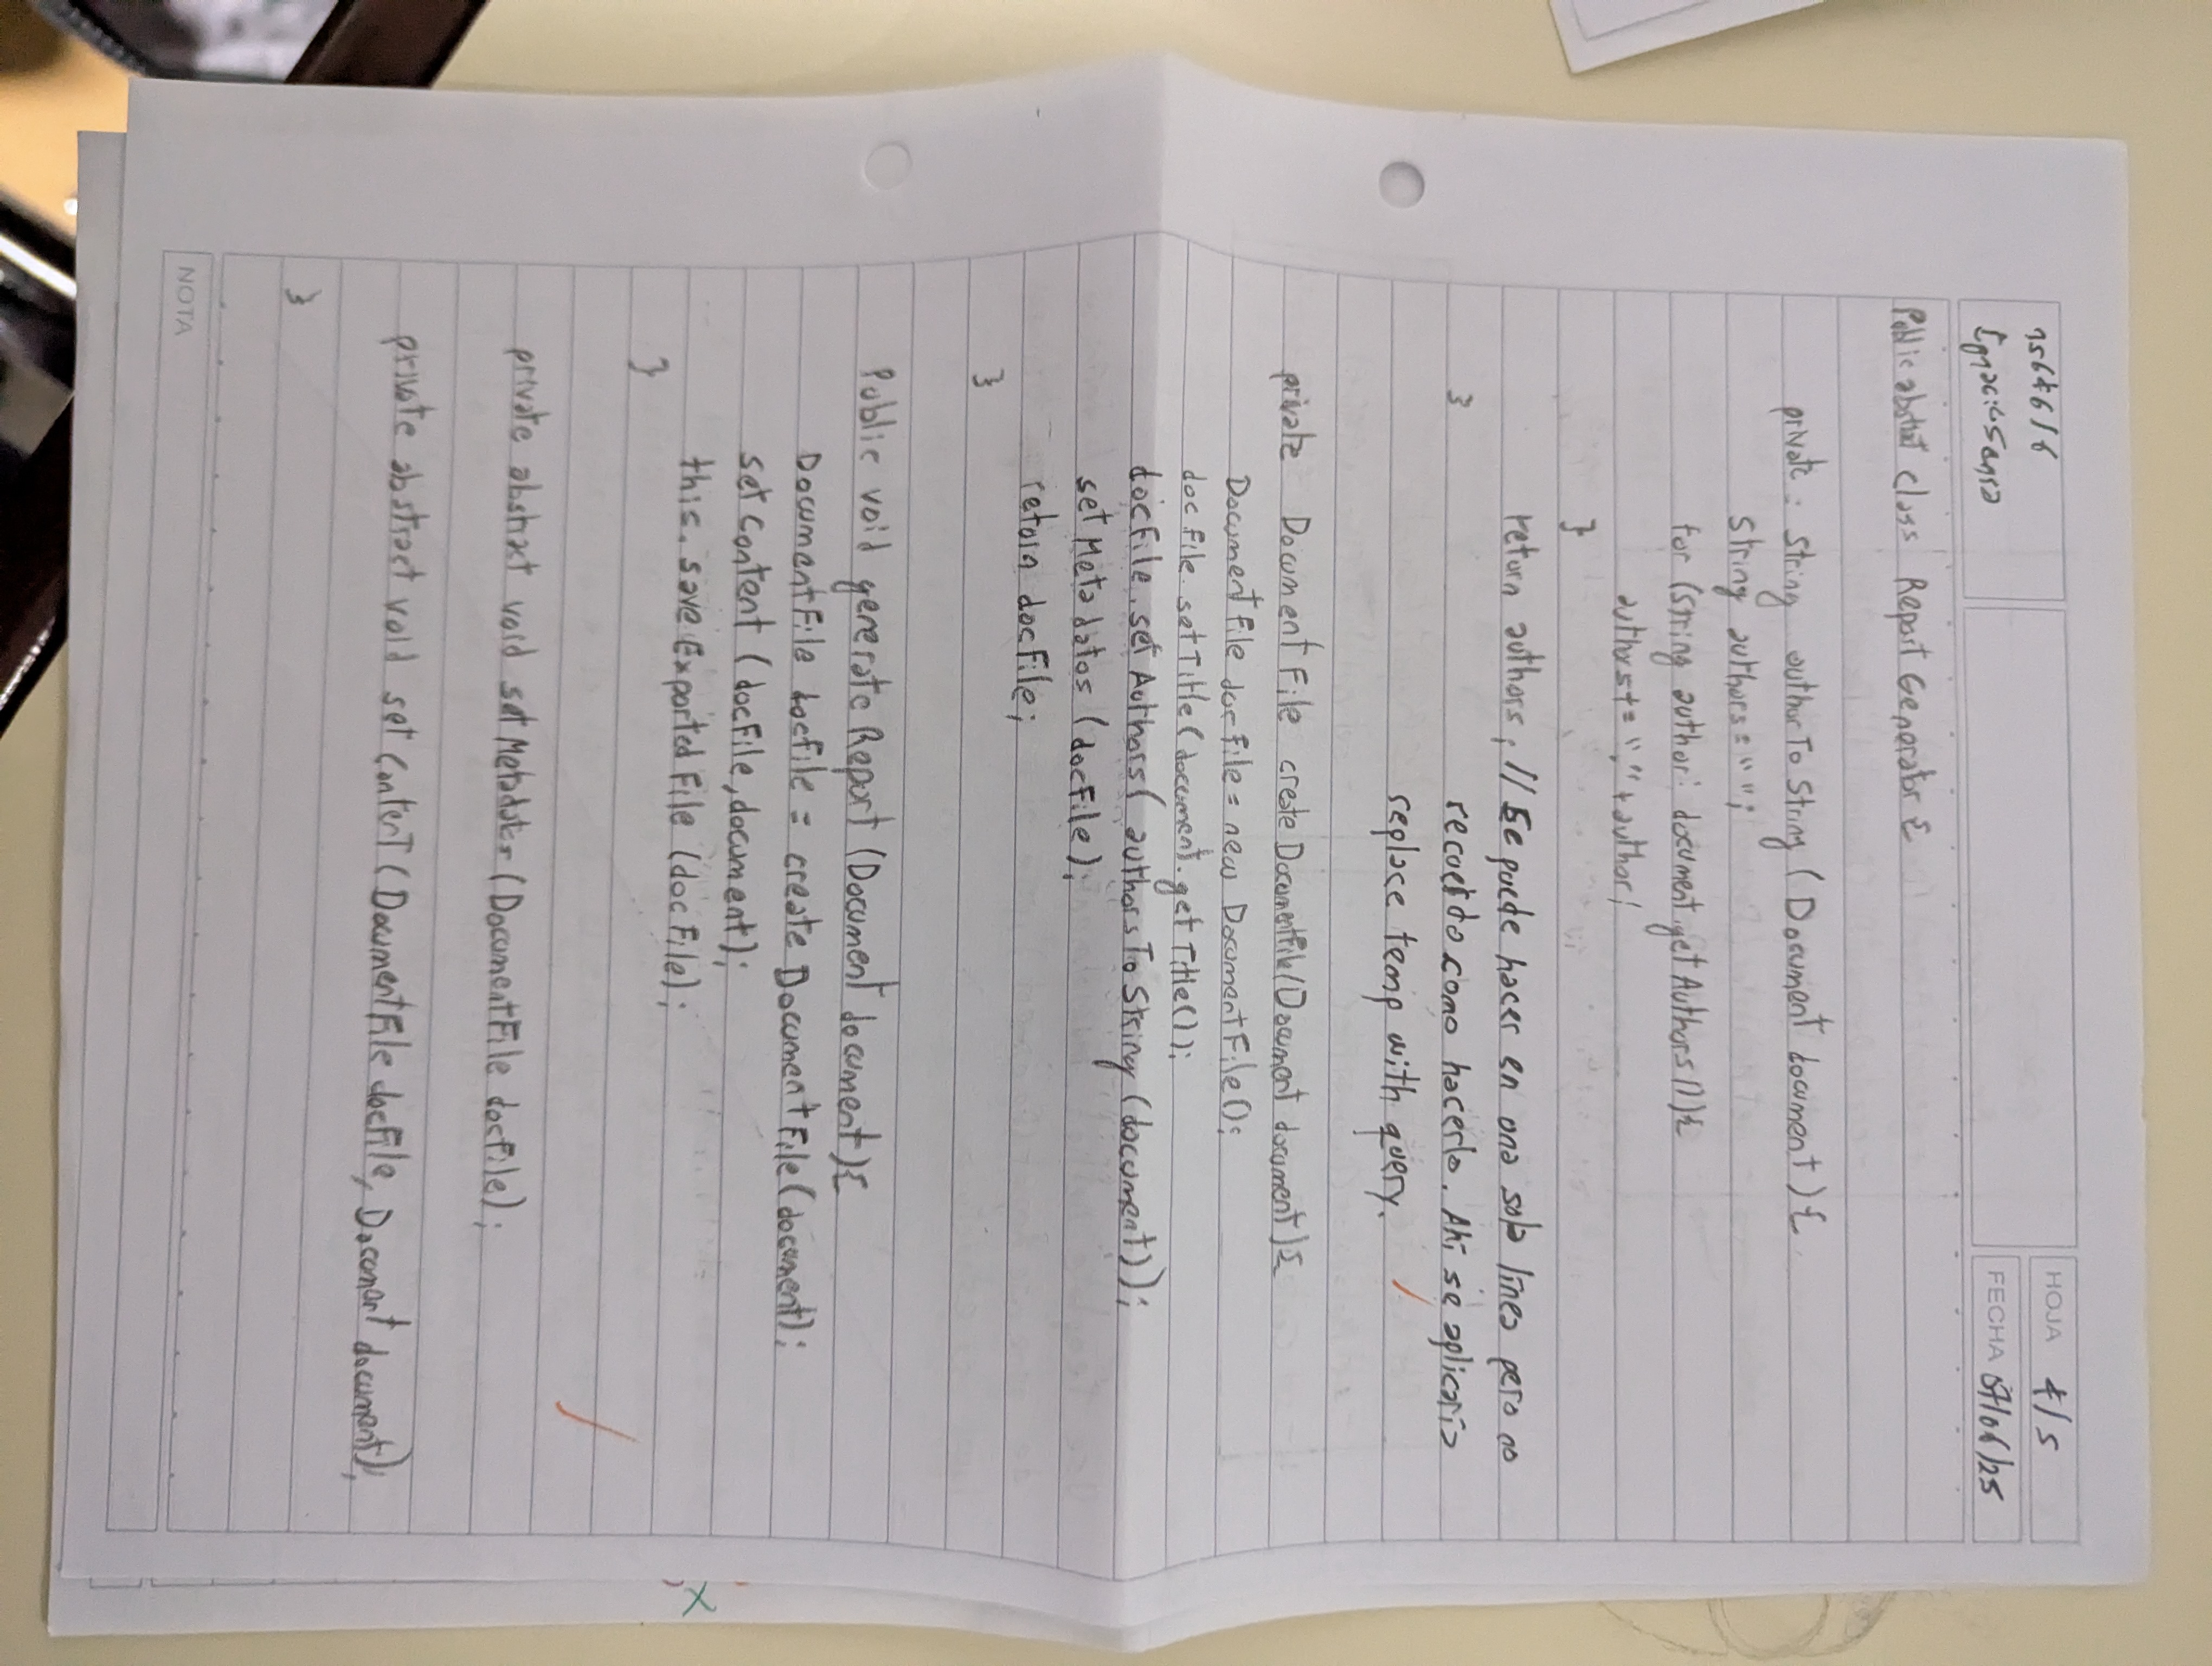 HOJA 4/5
FECHA 07/06/25
Public abstract class Report Generator {
private String authorToString (Document document) {
String authors = " ";
for (String author: document.getAuthors()){
authors += "," + author;
}
return authors; // Se puede hacer en una sola línea pero no
}
recuerdo como hacerlo. Ahí se aplicaría
replace temp with query.
private DocumentFile createDocumentFile(Document document){
DocumentFile docFile = new DocumentFile();
docFile.setTitle(document.getTitle());
docFile.setAuthors(authorsToString(document));
setMetadatos (docFile);
return docFile;
}
Public void generateReport (Document document){
DocumentFile docFile = createDocumentFile(document);
setContent (docFile, document);
this.saveExportedFile (docFile);
}
private abstract void setMetadatos (DocumentFile docFile);
private abstract void setContent (DocumentFile docFile, Document document);
}
NOTA